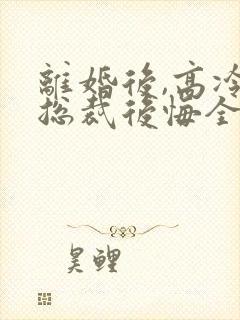 離婚後,高冷
總裁後悔全
昊鯉